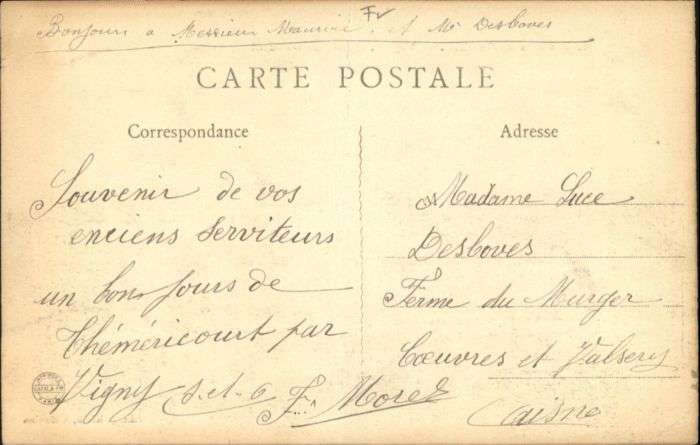 Bonjours a Messieur Maurice et Mr Desboves
CARTE POSTALE
Correspondance
Souvenir de vos
enciens serviteurs
un bon jours de
Théméricourt par
Vigny S-et-O
F. Morel
Adresse
Madame Luce
Desboves
Ferme du Murger
Cœuvres et Valsery
Aisne